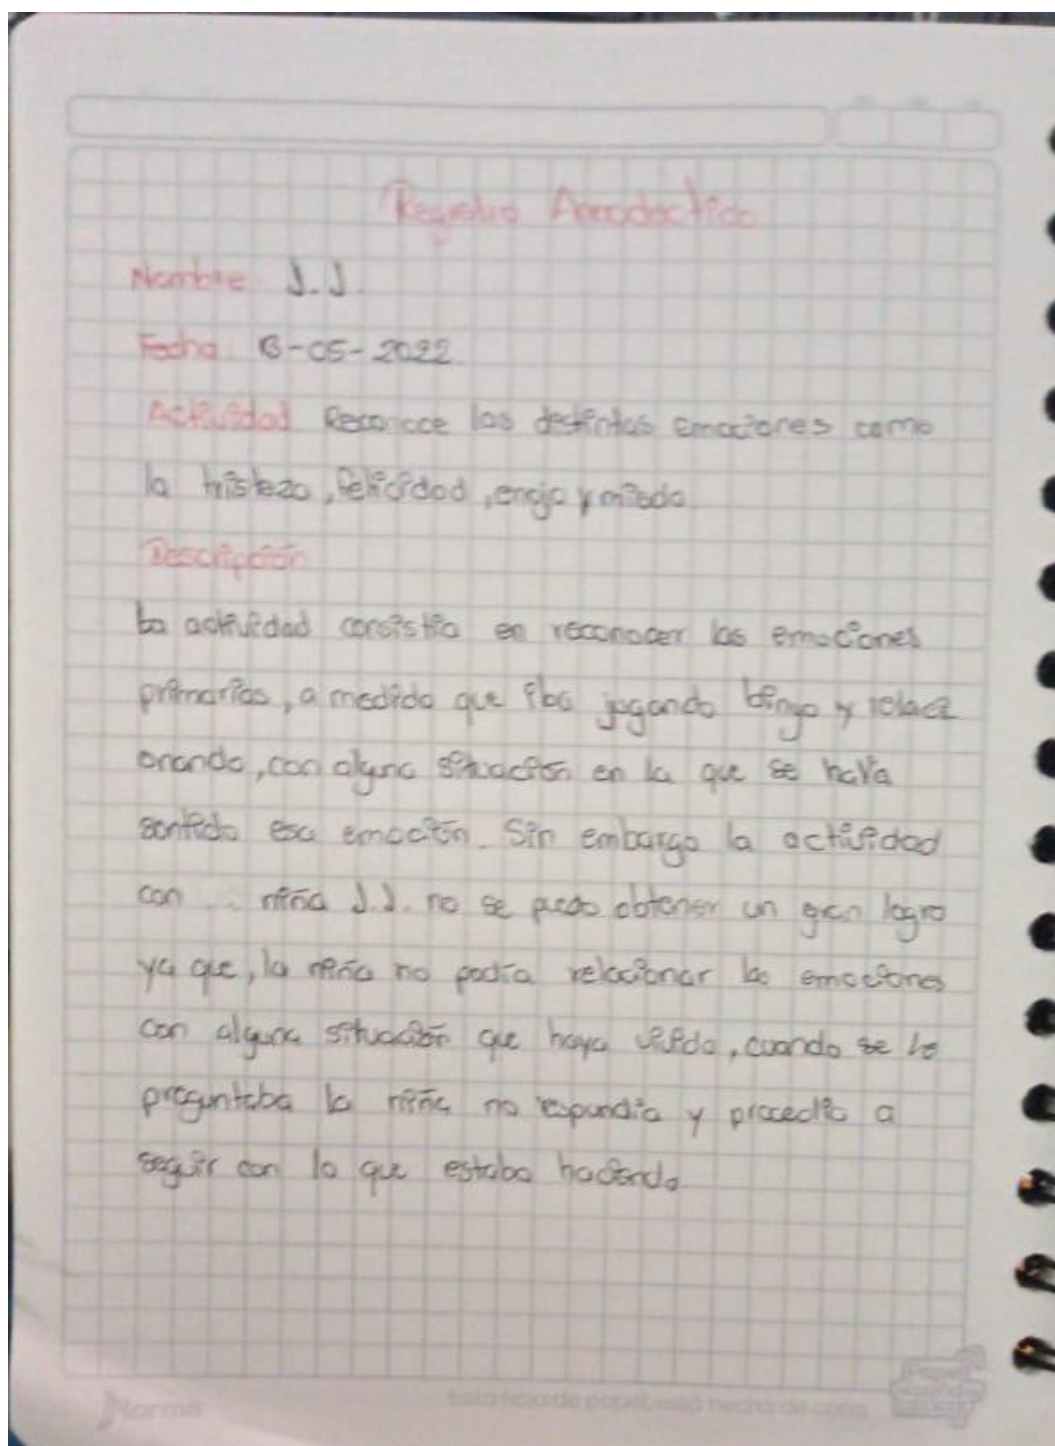 Registro Anecdoctico
Nombre: J.J.
Fecha: 13-05-2022.
Actividad Reconoce las distintas emociones como
la tristeza, felicidad, enojo y miedo
Descripción
La actividad consistia en reconocer las emociones
primarias, a medida que iba jugando bingo y relaci
onando, con alguna situación en la que se haya
sentido esa emoción. Sin embargo la actividad
con niña J.J. no se puedo obtener un gran logro
ya que, la niña no podía relacionar las emociones
con alguna situación que haya vivido, cuando se le
preguntaba la niña no respondía y procedio a
seguir con lo que estaba haciendo.
Norma
Esta hoja de papel, está hecha de caña